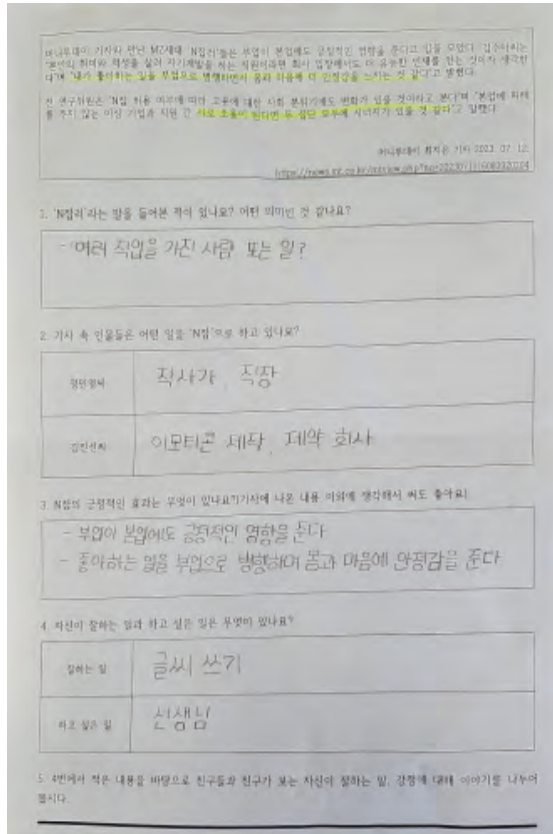 머니투데이 기자와 만난 MZ세대 'N잡러'들은 부업이 본업에도 긍정적인 영향을 준다고 입을 모았다. 김주아씨는
"본인의 취미와 적성을 살려 자기계발을 하는 직원이라면 회사 입장에서도 더 유능한 인재를 얻는 것이라 생각한
다"며 "내가 좋아하는 일을 부업으로 병행하면서 몸과 마음에 더 안정감을 느끼는 것 같다"고 말했다.
전 연구위원은 "N잡 허용 여부에 따라 고용에 대한 사회 분위기에도 변화가 있을 것이라고 본다"며 "본업에 피해
를 주지 않는 이상 기업과 직원 간 서로 조율이 된다면 두 집단 모두에 시너지가 있을 것 같다"고 말했다.
머니투데이 최지은 기자 2023. 07. 12.
1. 'N잡러'라는 말을 들어본 적이 있나요? 어떤 의미인 것 같나요?
- 여러 직업을 가진 사람 또는 일?
2. 기사 속 인물들은 어떤 일을 'N잡'으로 하고 있나요?
작사가, 직장
김진선씨 이모티콘 제작, 제약 회사
3. N잡의 긍정적인 효과는 무엇이 있나요?(기사에 나온 내용 이외에 생각해서 써도 좋아요)
- 부업이 본업에도 긍정적인 영향을 준다
- 좋아하는 일을 부업으로 병행하며 몸과 마음에 안정감을 준다
4. 자신이 잘하는 일과 하고 싶은 일은 무엇이 있나요?
잘하는 일 글씨 쓰기
하고 싶은 일 선생님
5. 4번에서 적은 내용을 바탕으로 친구들과 친구가 보는 자신이 잘하는 일, 강점에 대해 이야기를 나누어
봅시다.